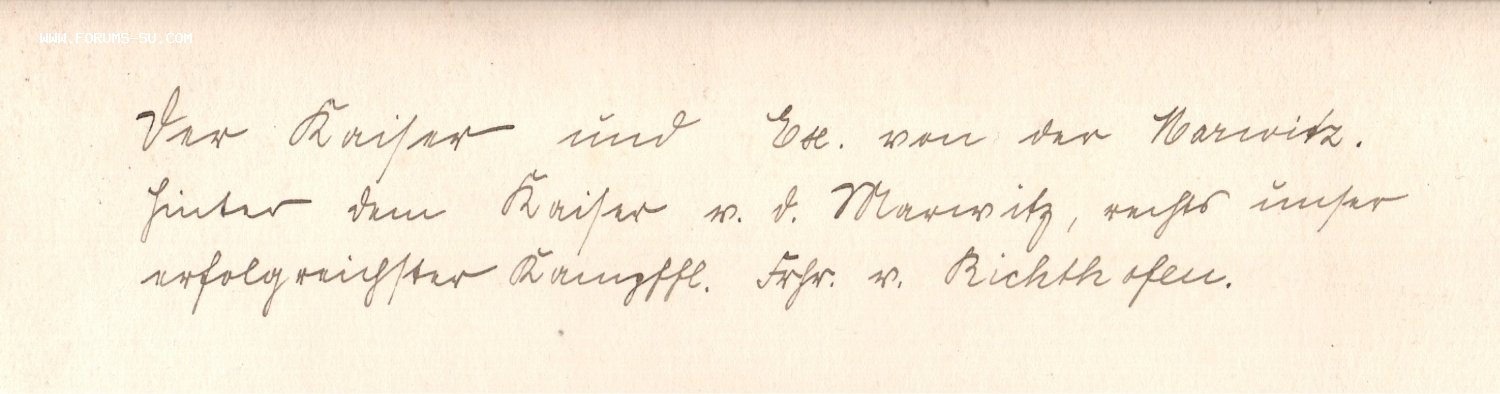 WWW.FORUMS-SU.COM
Der Kaiser und Exc. von der Marwitz.
Hinter dem Kaiser v. d. Marwitz, rechts unser
erfolgreichster Kampffl. Frhr. v. Richthofen.